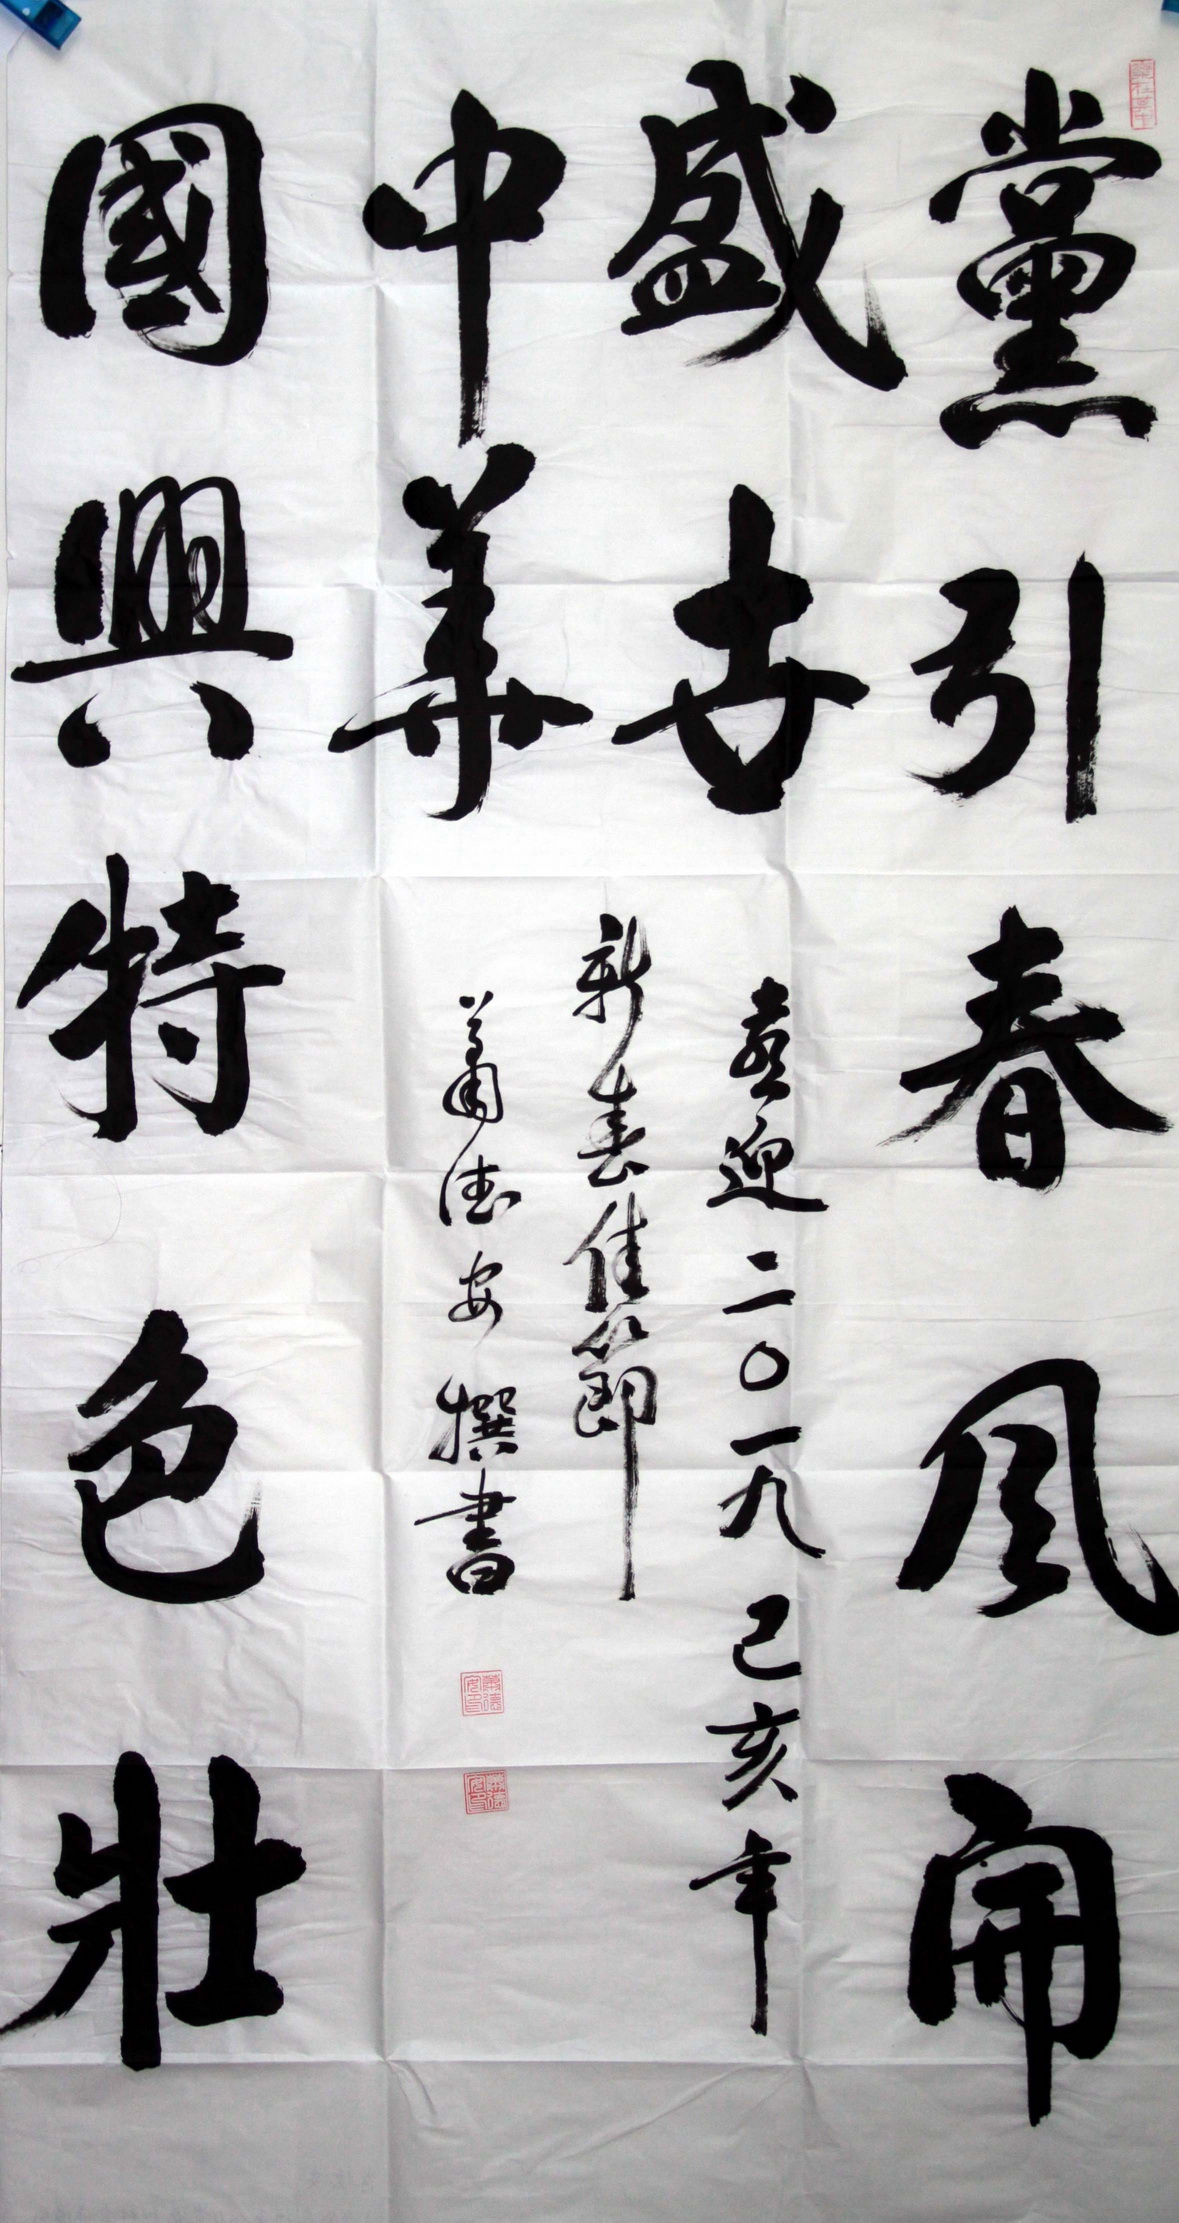 黨引春風開
盛世
中華
國興特色壯
喜迎二〇一九己亥年
新春佳節
蕭德安撰書